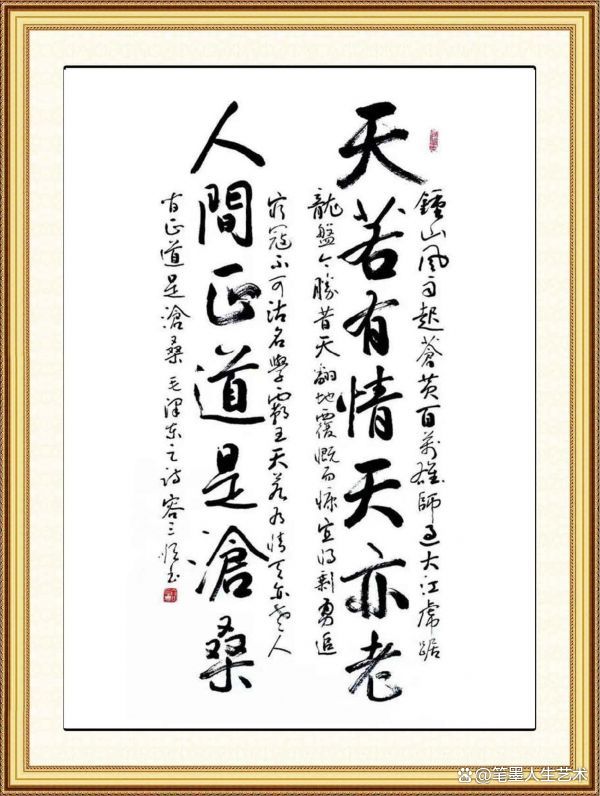 天若有情天亦老
人間正道是滄桑
鍾山風雨起蒼黄百萬雄師过大江虎踞
龍盤今勝昔天翻地覆慨而慷宜将剩勇追
穷寇不可沽名學霸王天若有情天亦老人
间正道是滄桑 毛澤东之诗
@笔墨人生艺术